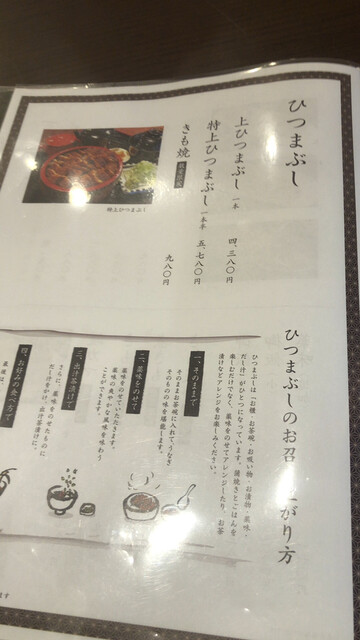 ひつまぶし
上ひつまぶし 一本 四、三八〇円
特上ひつまぶし 一本半 五、七八〇円
きも焼 九八〇円
特上ひつまぶし
ひつまぶしのお召 がり方
ひつまぶしは「お櫃・お茶碗・お吸い物・お漬物・薬味・
だし汁」がひとつになっています。蒲焼きとごはんを
楽しむだけでなく、薬味をのせてアレンジしたり、お茶
漬けなどアレンジをお楽しみください。
一、そのままで
そのままお茶碗に入れて、うなぎ
そのものの味を堪能します。
二、薬味をのせて
薬味をのせていただきます。
薬味の爽やかな風味を味わう
ことができます。
三、出汁茶漬けで
さらに、薬味をのせたものに
だし汁をかけ、出汁茶漬けに。
四、お好みの食べ方で